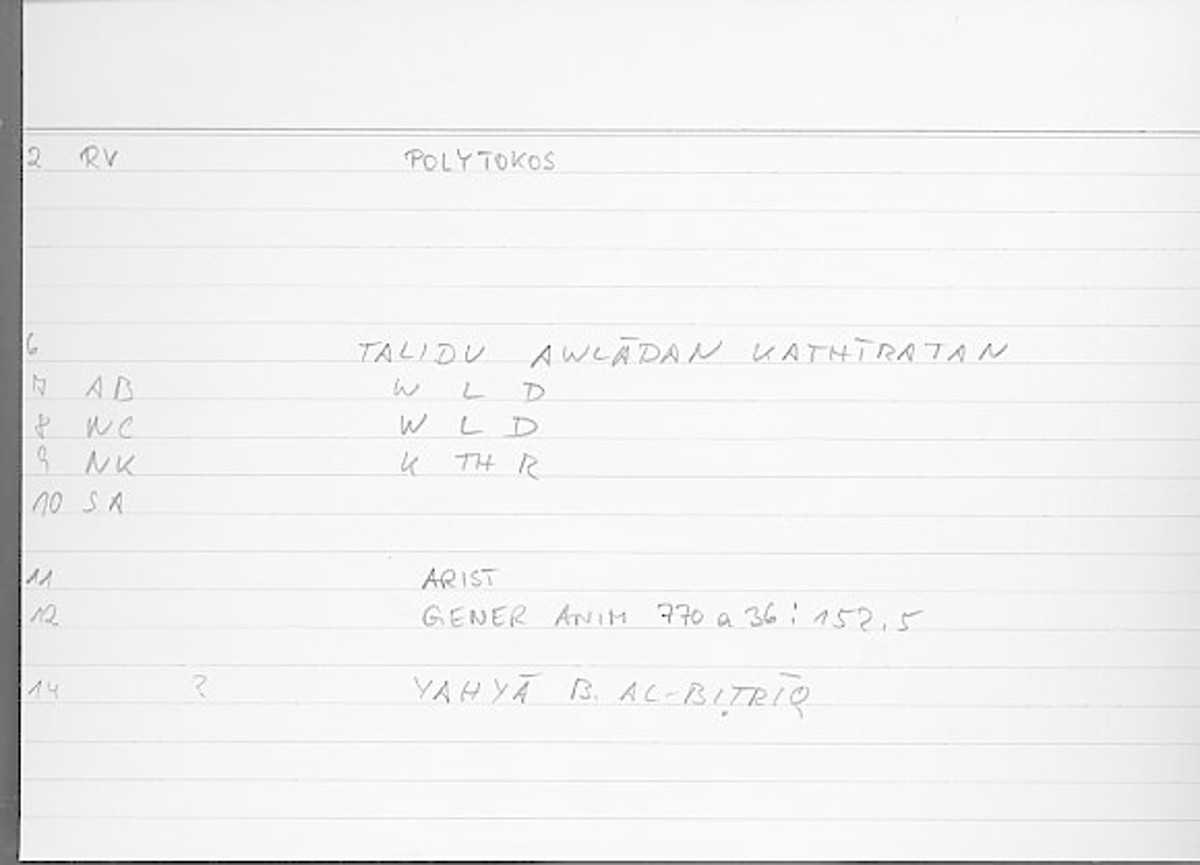 2 RV POLYTOKOS
6 TALIDU AWLĀDAN KATHĪRATAN
7 AB W L D
8 WC W L D
9 NK K TH R
10 SA
11 ARIST
12 GENER ANIM 770 a 36 : 152.5
14 ? YAHYĀ B. AL-BIṬRĪQ